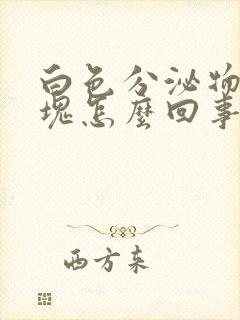 白色分泌物
塊怎麼回事
西方来